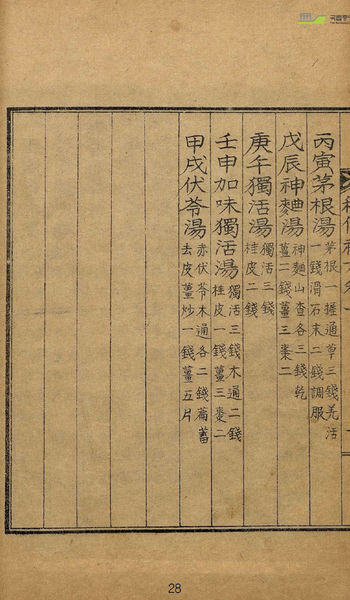 丙寅茅根湯 茅根一握通草三錢羌活一錢滑石末二錢調服
戊辰神麯湯 神麯山查各三錢乾薑二錢薑三棗二
庚午獨活湯 獨活三錢桂皮二錢
壬申加味獨活湯 獨活三錢木通二錢桂皮一錢薑三棗二
甲戌伏苓湯 赤伏苓木通各二錢萹蓄去皮薑炒一錢薑五片
28